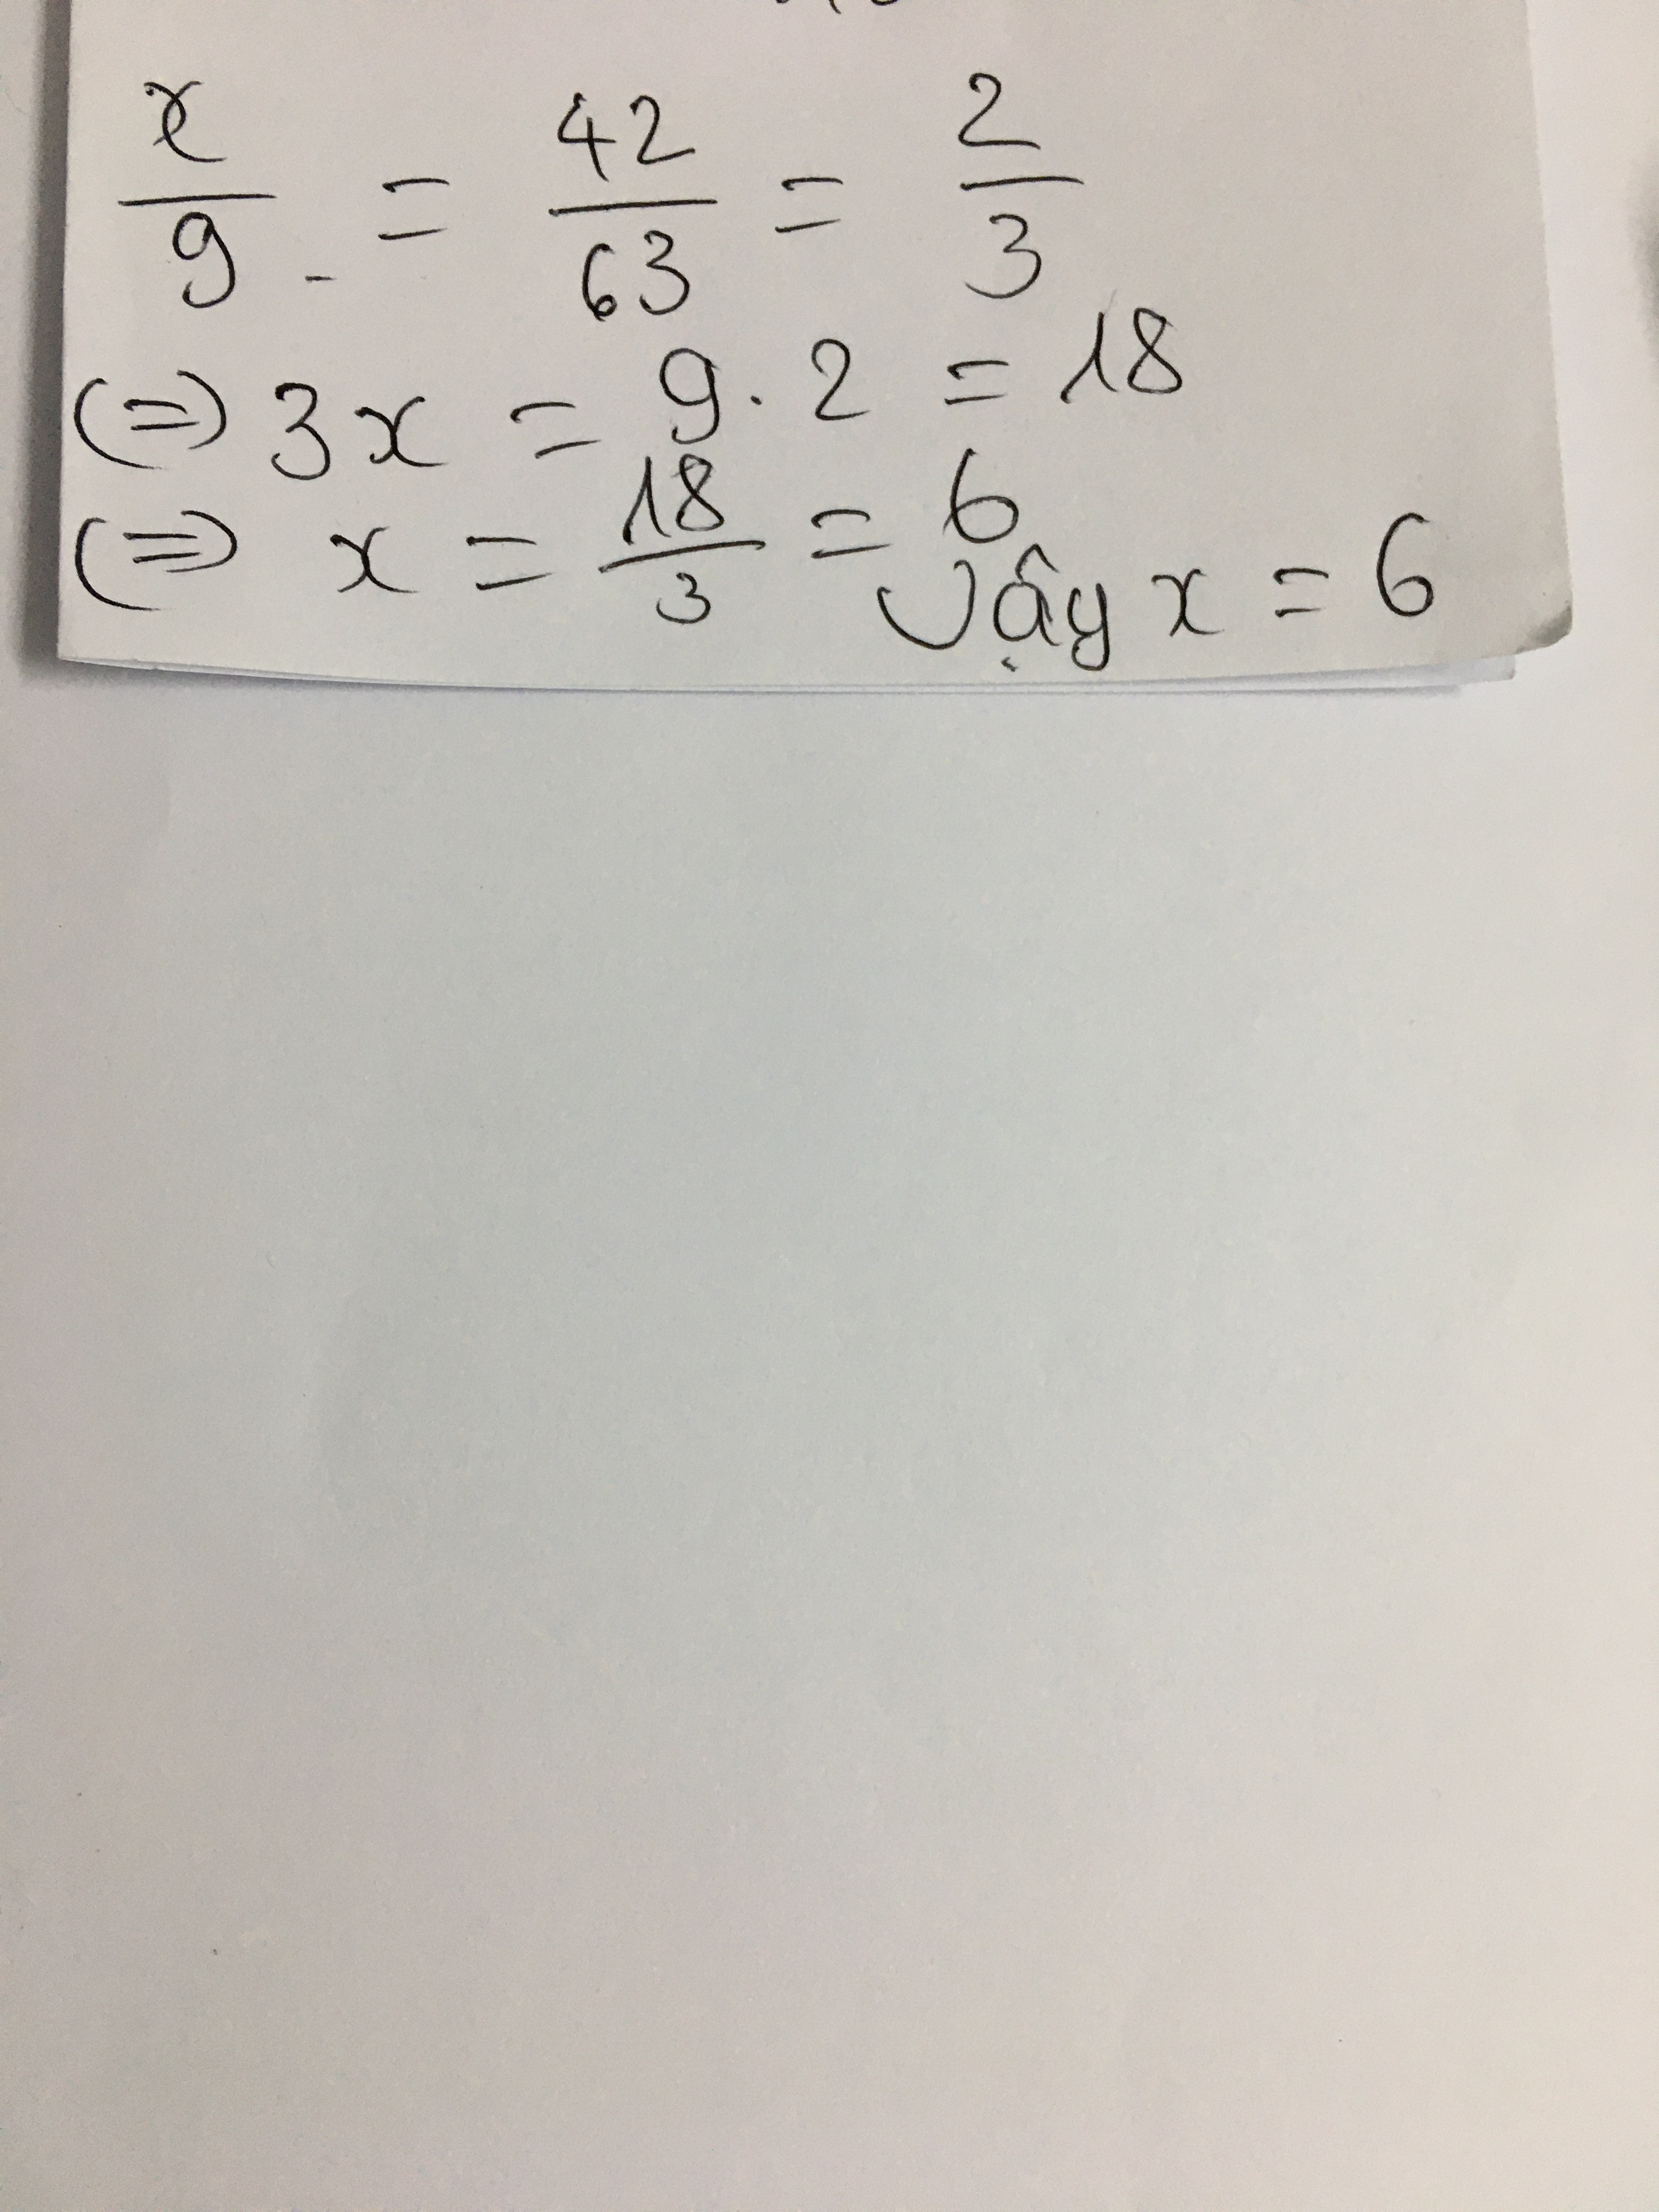 x/9 = 42/63 = 2/3
(=) 3x = 9.2 = 18
(=) x = 18/3 = 6
Vậy x = 6